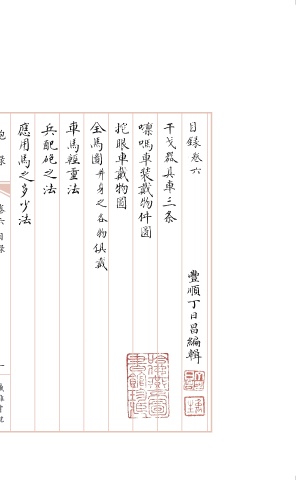 目録卷六
豐順丁日昌編輯
干戈器具車三条
嘌嗎車裝戴物件圖
挖眼車戴物圖
全馬圖并身之各物俱戴
車馬輕重法
兵配砲之法
應用馬之多少法
卷六目録
一